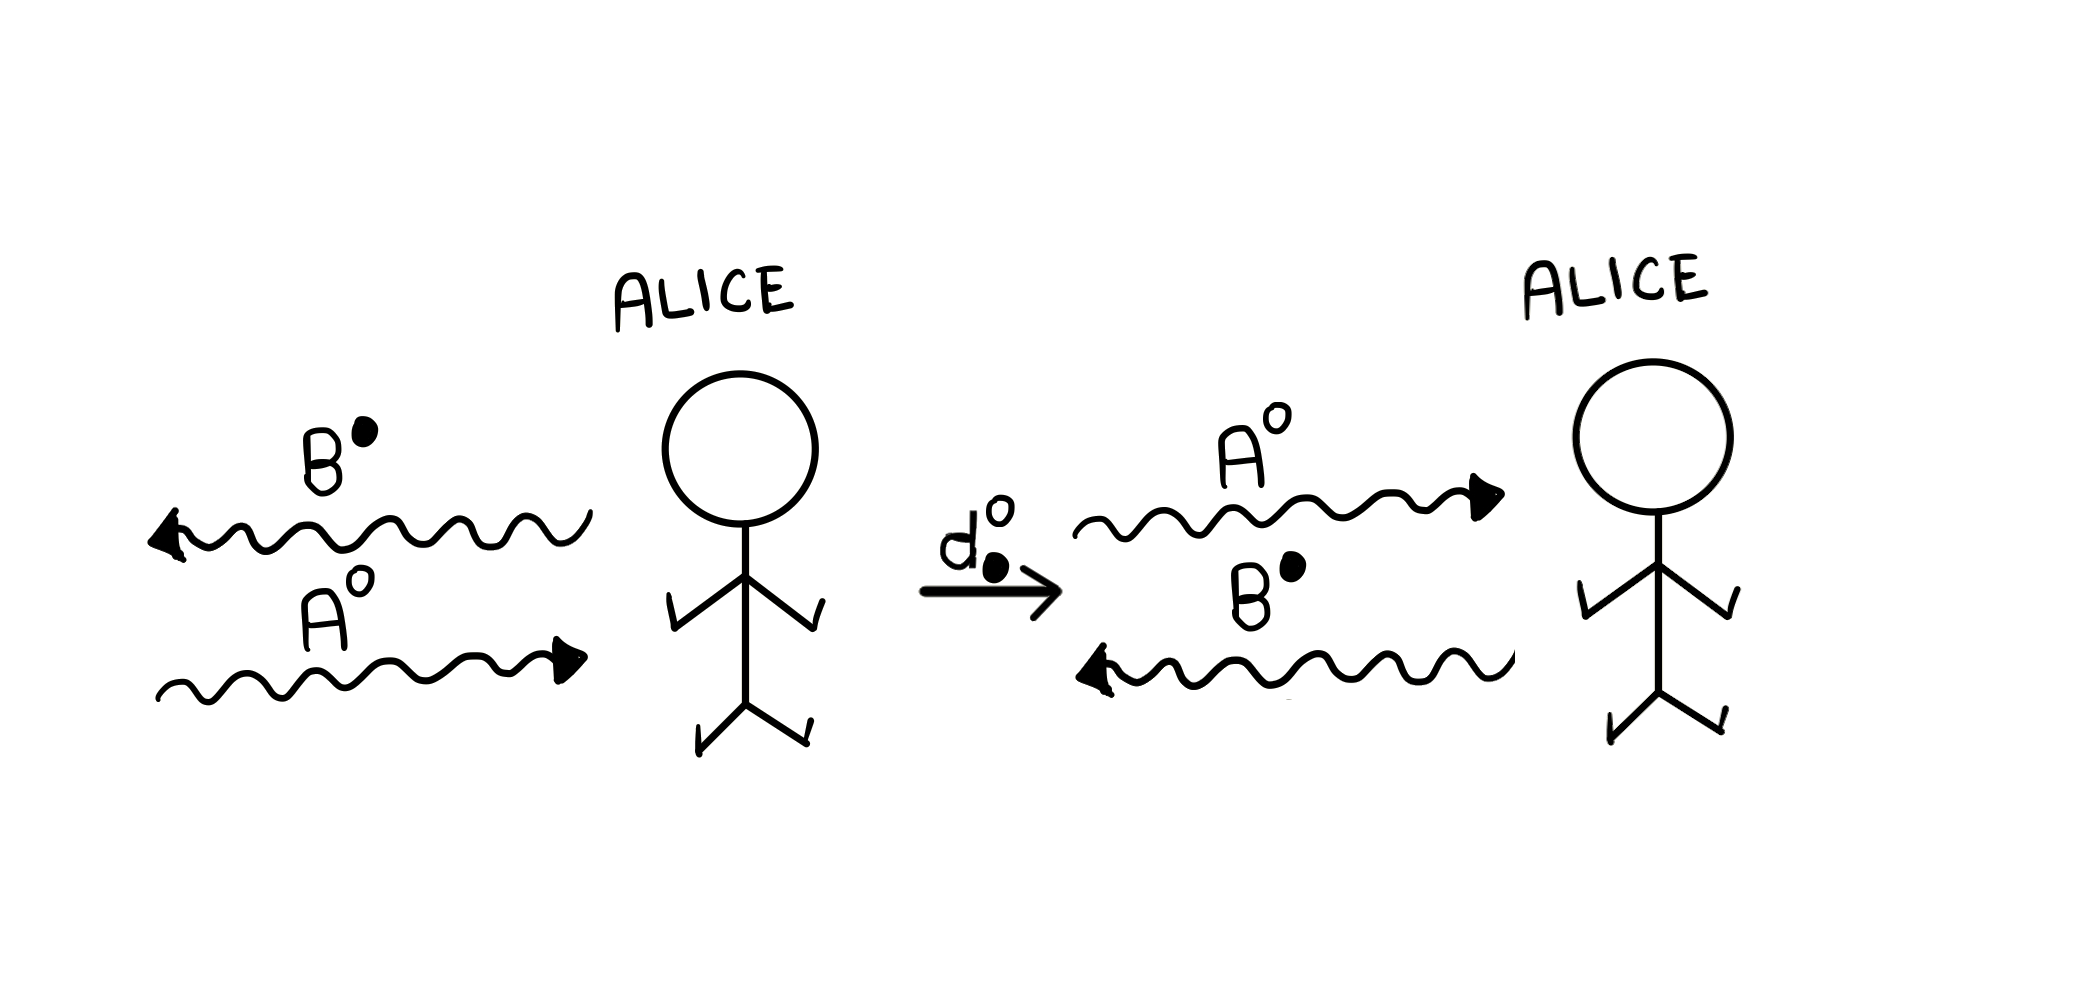 ALICE
B•
A°
d°•
ALICE
A°
B•